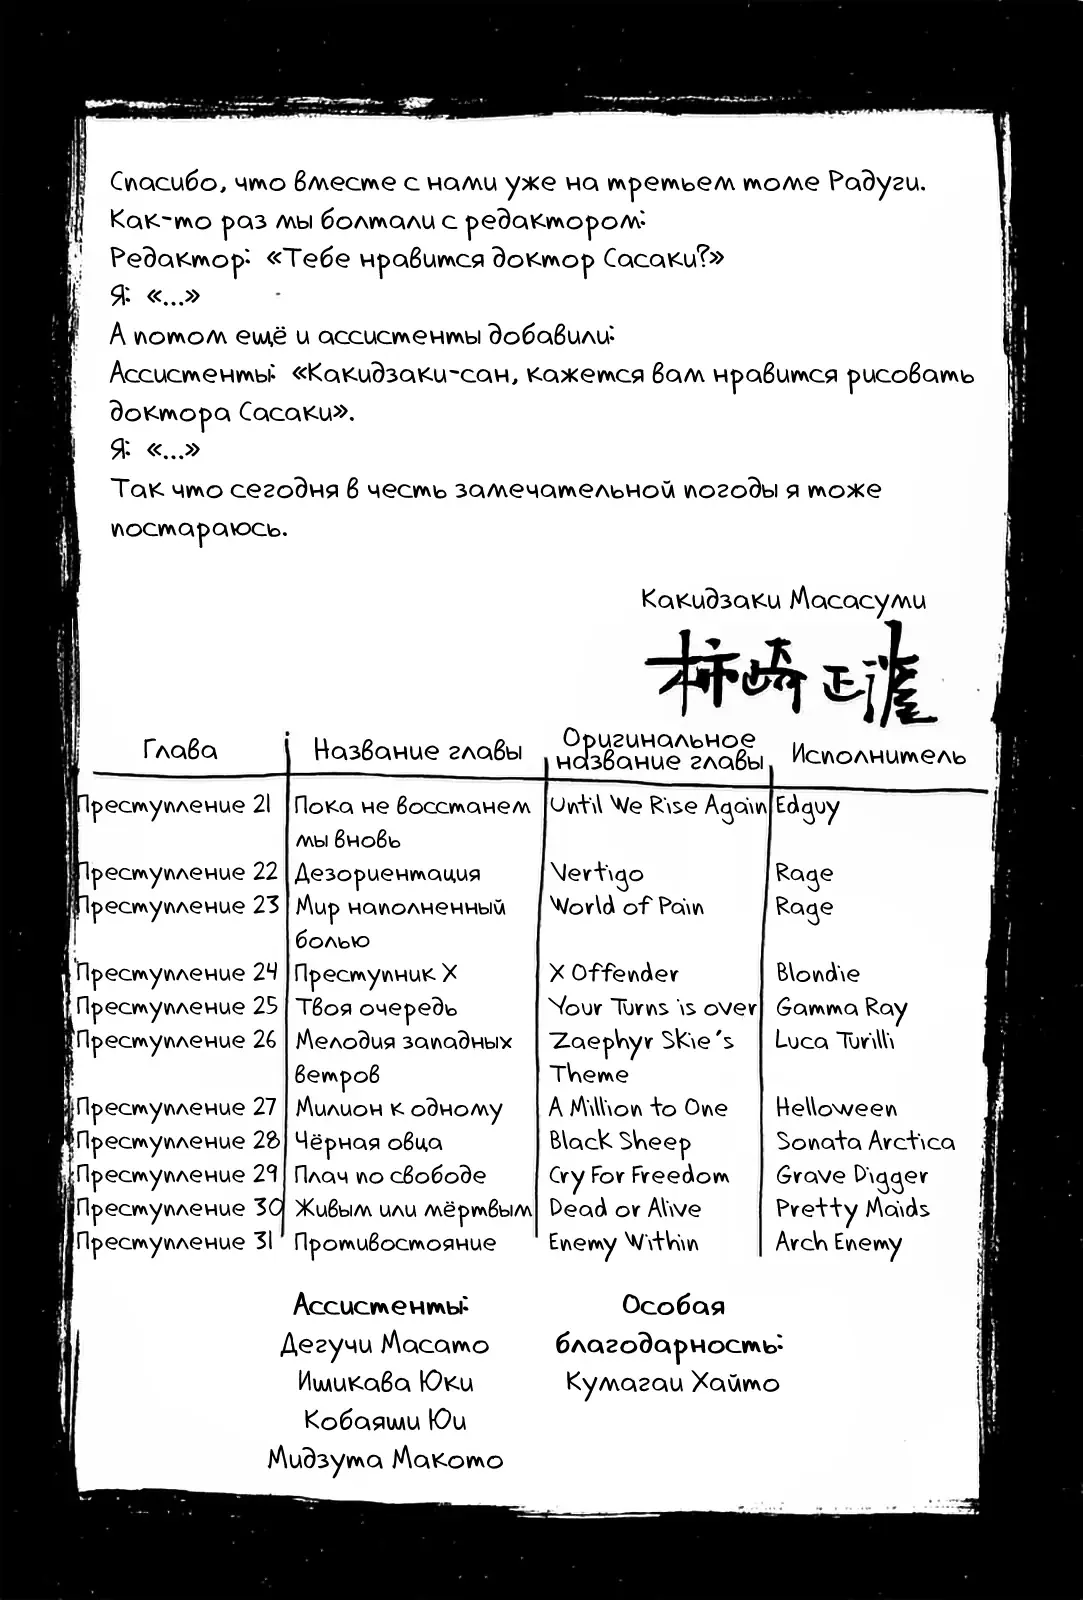 Спасибо, что вместе с нами уже на третьем томе Радуги.
Как-то раз мы болтали с редактором:
Редактор: «Тебе нравится доктор Сасаки?»
Я: «...»
А потом ещё и ассистенты добавили:
Ассистенты: «Какидзаки-сан, кажется вам нравится рисовать
доктора Сасаки».
Я: «...»
Так что сегодня в честь замечательной погоды я тоже
постараюсь.
Какидзаки Масасуми
柿崎正澄
Глава Название главы Оригинальное название главы Исполнитель
Преступление 21 Пока не восстанем Until We Rise Again Edguy
мы вновь
Преступление 22 Дезориентация Vertigo Rage
Преступление 23 Мир наполненный World of Pain Rage
болью
Преступление 24 Преступник Х X Offender Blondie
Преступление 25 Твоя очередь Your Turns is over Gamma Ray
Преступление 26 Мелодия западных Zaephyr Skie's Luca Turilli
ветров Theme
Преступление 27 Милион к одному A Million to One Helloween
Преступление 28 Чёрная овца Black Sheep Sonata Arctica
Преступление 29 Плач по свободе Cry For Freedom Grave Digger
Преступление 30 Живым или мёртвым Dead or Alive Pretty Maids
Преступление 31 Противостояние Enemy Within Arch Enemy
Ассистенты:
Дегучи Масато
Ишикава Юки
Кобаяши Юи
Мидзута Макото
Особая
благодарность:
Кумагаи Хайто